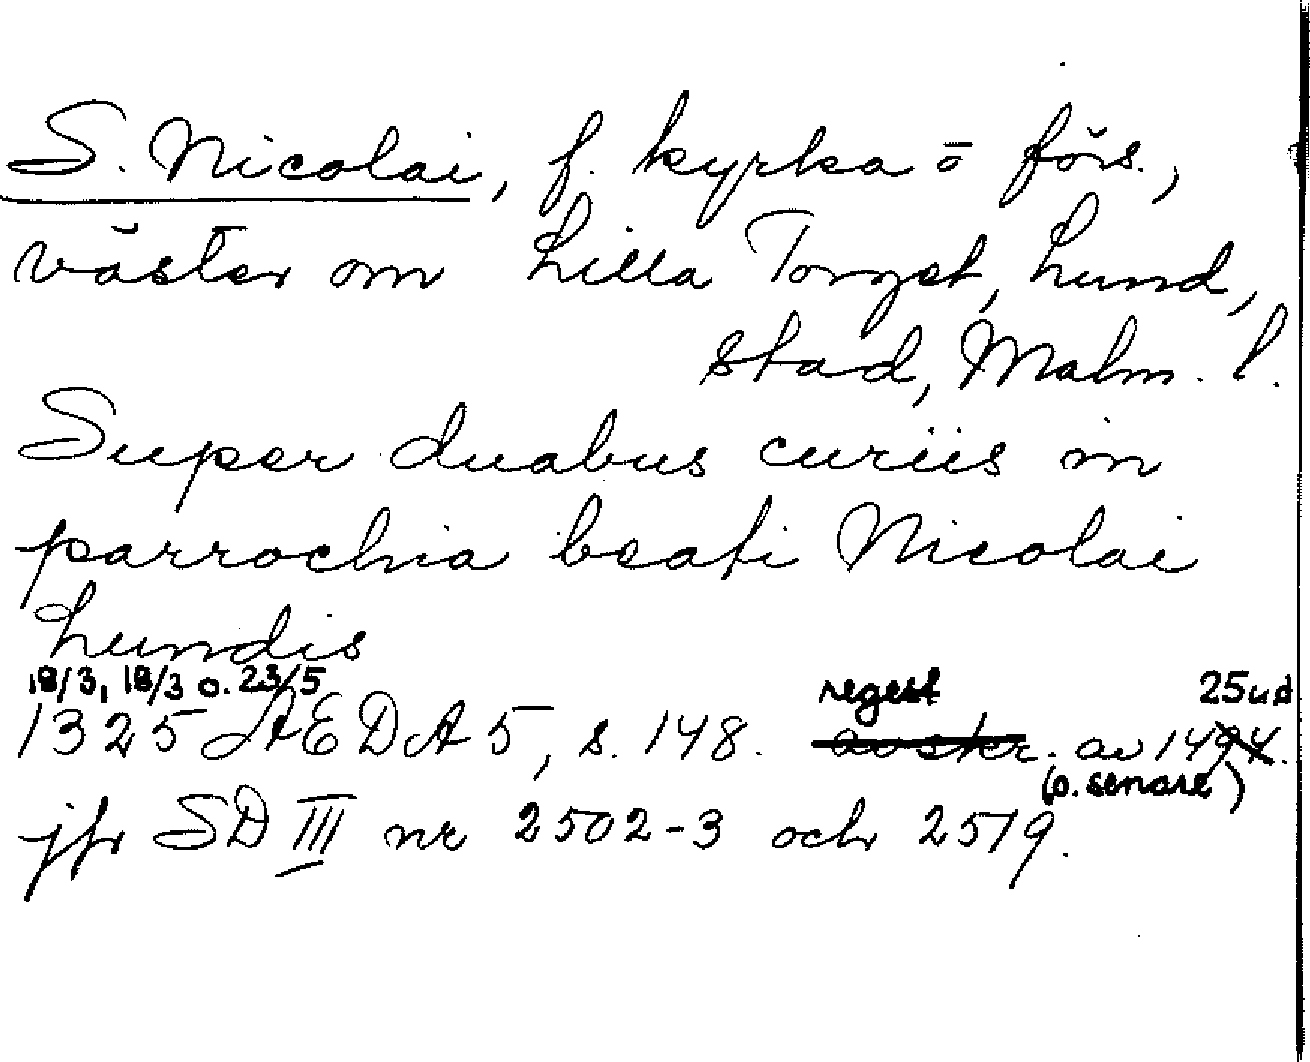 S. Nicolai, f. kyrka o förs.,
väster om Lilla Torget, Lund,
stad, Malm. l.
Super duabus curiis in
parrochia beati Nicolai
Lundis
18/3, 18/3 o. 23/5 regest 25
1325 AEDA 5, s. 148. avskr. av 1494.
(o. senare)
jfr SD III nr 2502-3 och 2519.